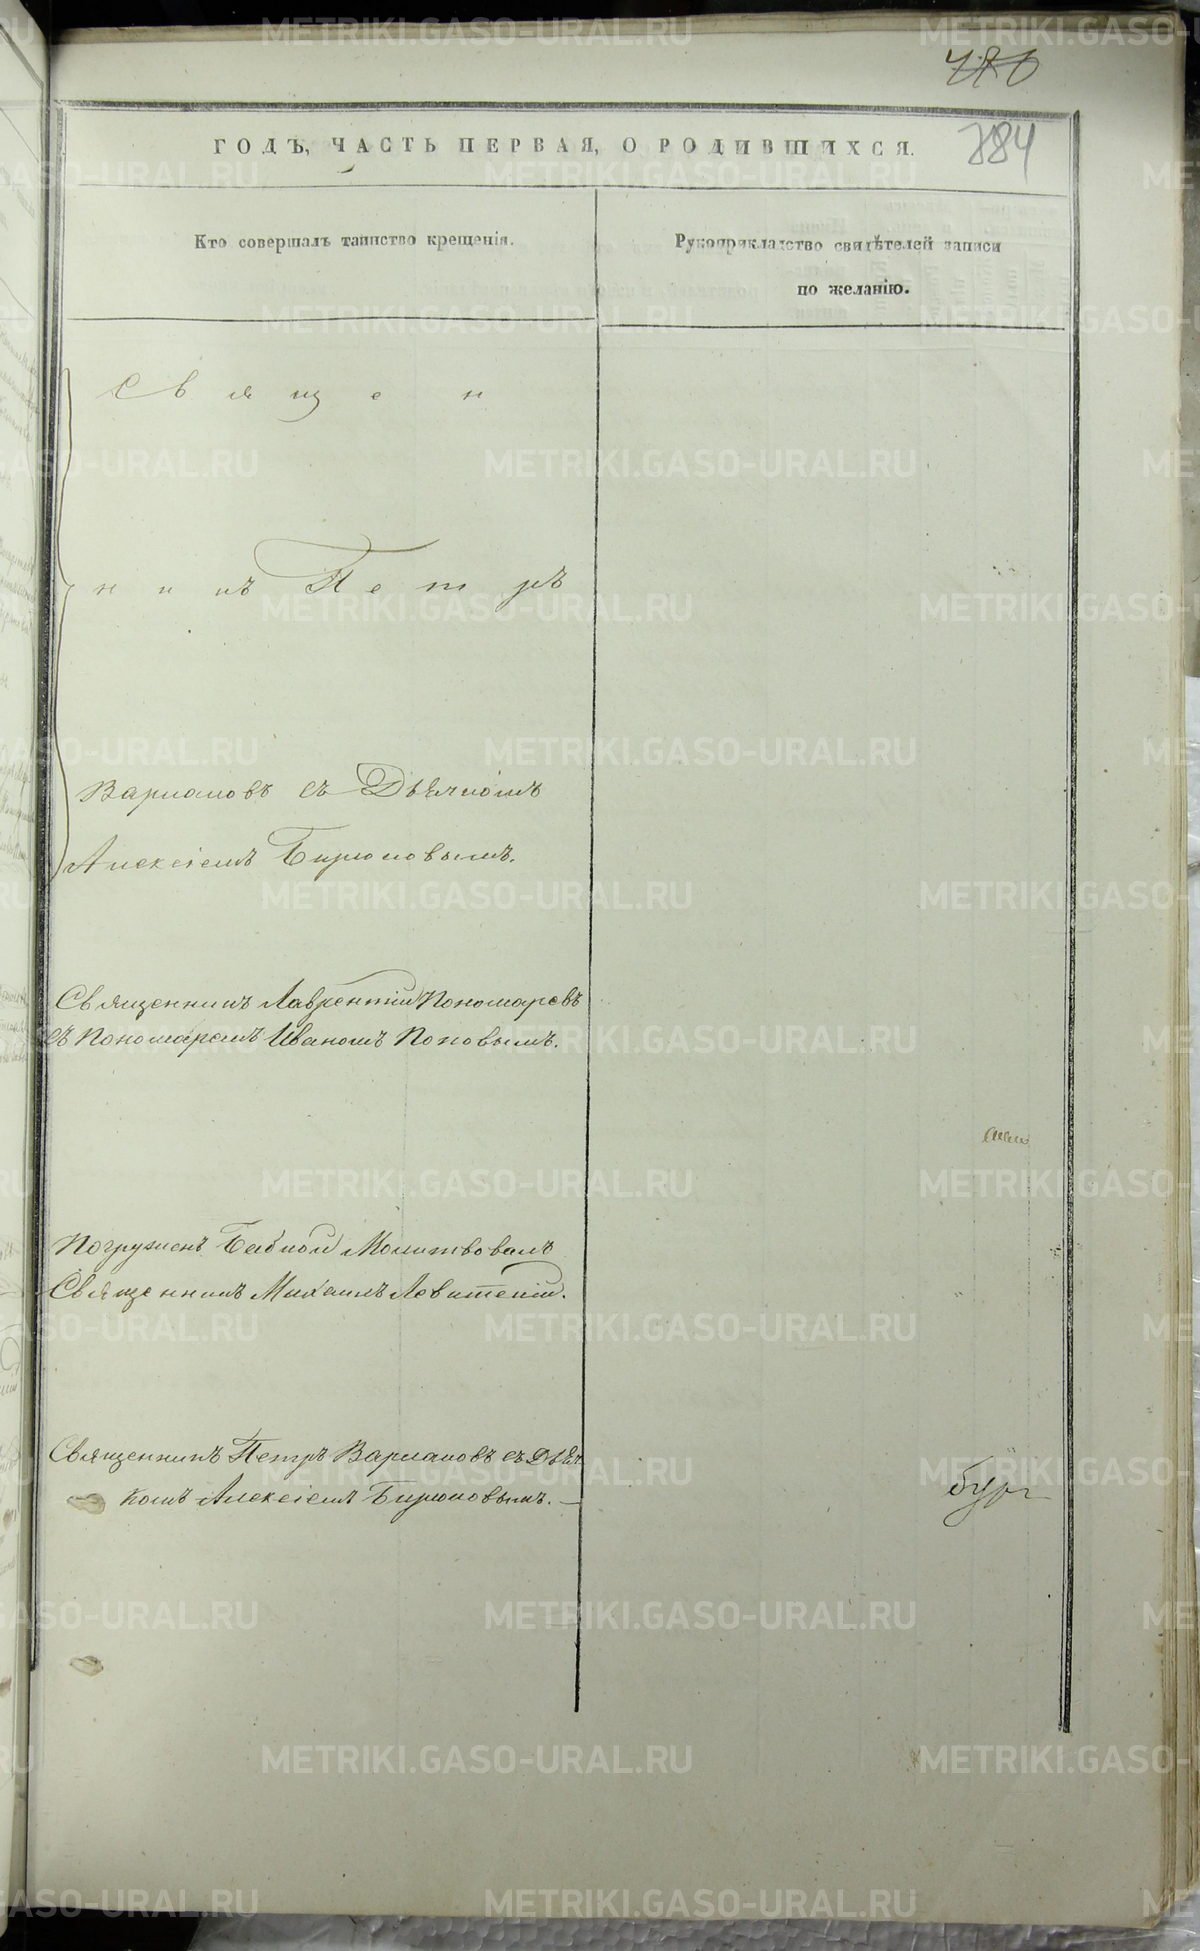 784
ГОДЪ, ЧАСТЬ ПЕРВАЯ, О РОДИВШИХСЯ.
Кто совершалъ таинство крещенія.
Рукоприкладство свидѣтелей записи
по желанію.
Свящeн
никъ Петръ
Варлаковъ съ Дьячкомъ
Алексіемъ Бирюковымъ.
Священникъ Лаврентій Пономаревъ
съ Пономаремъ Иваномъ Поповымъ.
Погружен Бабкой Молитвовалъ
Священникъ Михаилъ Левитскій.
Священникъ Петръ Варлаковъ съ Дьяч
комъ Алексіемъ Бирюковымъ.
бург
METRIKI.GASO-URAL.RU